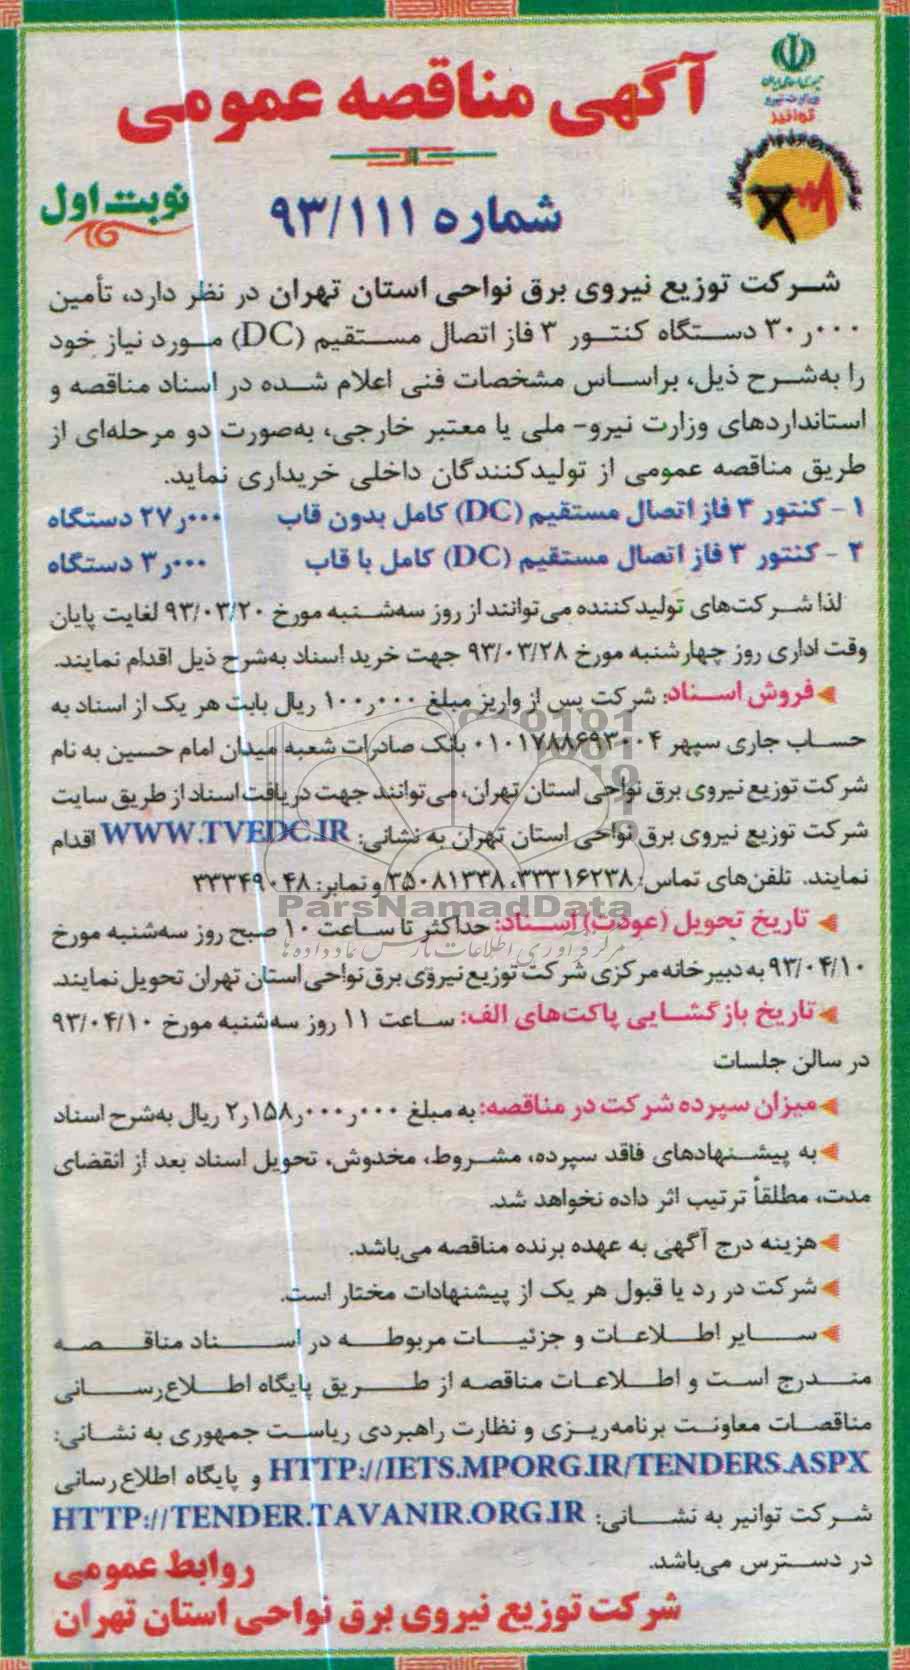 جمهوری اسلامی ایران
وزارت نیرو
توانیر
آگهی مناقصه عمومی
نوبت اول
شماره ۹۳/۱۱۱
شرکت توزیع نیروی برق نواحی استان تهران در نظر دارد، تأمین
۳۰٫۰۰۰ دستگاه کنتور ۳ فاز اتصال مستقیم (DC) مورد نیاز خود
را به‌شرح ذیل، براساس مشخصات فنی اعلام شده در اسناد مناقصه و
استانداردهای وزارت نیرو- ملی یا معتبر خارجی، به‌صورت دو مرحله‌ای از
طریق مناقصه عمومی از تولیدکنندگان داخلی خریداری نماید.
۱ - کنتور ۳ فاز اتصال مستقیم (DC) کامل بدون قاب ۲۷٫۰۰۰ دستگاه
۲ - کنتور ۳ فاز اتصال مستقیم (DC) کامل با قاب ۳٫۰۰۰ دستگاه
لذا شرکت‌های تولیدکننده می‌توانند از روز سه‌شنبه مورخ ۹۳/۰۳/۲۰ لغایت پایان
وقت اداری روز چهارشنبه مورخ ۹۳/۰۳/۲۸ جهت خرید اسناد به‌شرح ذیل اقدام نمایند.
فروش اسناد: شرکت پس از واریز مبلغ ۱۰۰٫۰۰۰ ریال بابت هر یک از اسناد به
حساب جاری سپهر ۰۱۰۱۷۸۸۶۹۳۰۰۴ بانک صادرات شعبه میدان امام حسین به نام
شرکت توزیع نیروی برق نواحی استان تهران، می‌توانند جهت دریافت اسناد از طریق سایت
شرکت توزیع نیروی برق نواحی استان تهران به نشانی: WWW.TVEDC.IR اقدام
نمایند. تلفن‌های تماس: ۳۳۳۱۶۲۳۸، ۳۵۰۸۱۳۳۸ و نمابر: ۳۳۳۴۹۰۴۸
ParsNamadData
تاریخ تحویل (عودت) اسناد: حداکثر تا ساعت ۱۰ صبح روز سه‌شنبه مورخ
مرکز فرآوری اطلاعات پارس نماد داده‌ها
۹۳/۰۴/۱۰ به دبیرخانه مرکزی شرکت توزیع نیروی برق نواحی استان تهران تحویل نمایند.
تاریخ بازگشایی پاکت‌های الف: ساعت ۱۱ روز سه‌شنبه مورخ ۹۳/۰۴/۱۰
در سالن جلسات
میزان سپرده شرکت در مناقصه: به مبلغ ۲٫۱۵۸٫۰۰۰٫۰۰۰ ریال به‌شرح اسناد
به پیشنهادهای فاقد سپرده، مشروط، مخدوش، تحویل اسناد بعد از انقضای
مدت، مطلقاً ترتیب اثر داده نخواهد شد.
هزینه درج آگهی به عهده برنده مناقصه می‌باشد.
شرکت در رد یا قبول هر یک از پیشنهادات مختار است.
سایر اطلاعات و جزئیات مربوطه در اسناد مناقصه
مندرج است و اطلاعات مناقصه از طریق پایگاه اطلاع‌رسانی
مناقصات معاونت برنامه‌ریزی و نظارت راهبردی ریاست جمهوری به نشانی:
HTTP://IETS.MPORG.IR/TENDERS.ASPX و پایگاه اطلاع‌رسانی
شرکت توانیر به نشانی: HTTP://TENDER.TAVANIR.ORG.IR
در دسترس می‌باشد.
روابط عمومی
شرکت توزیع نیروی برق نواحی استان تهران